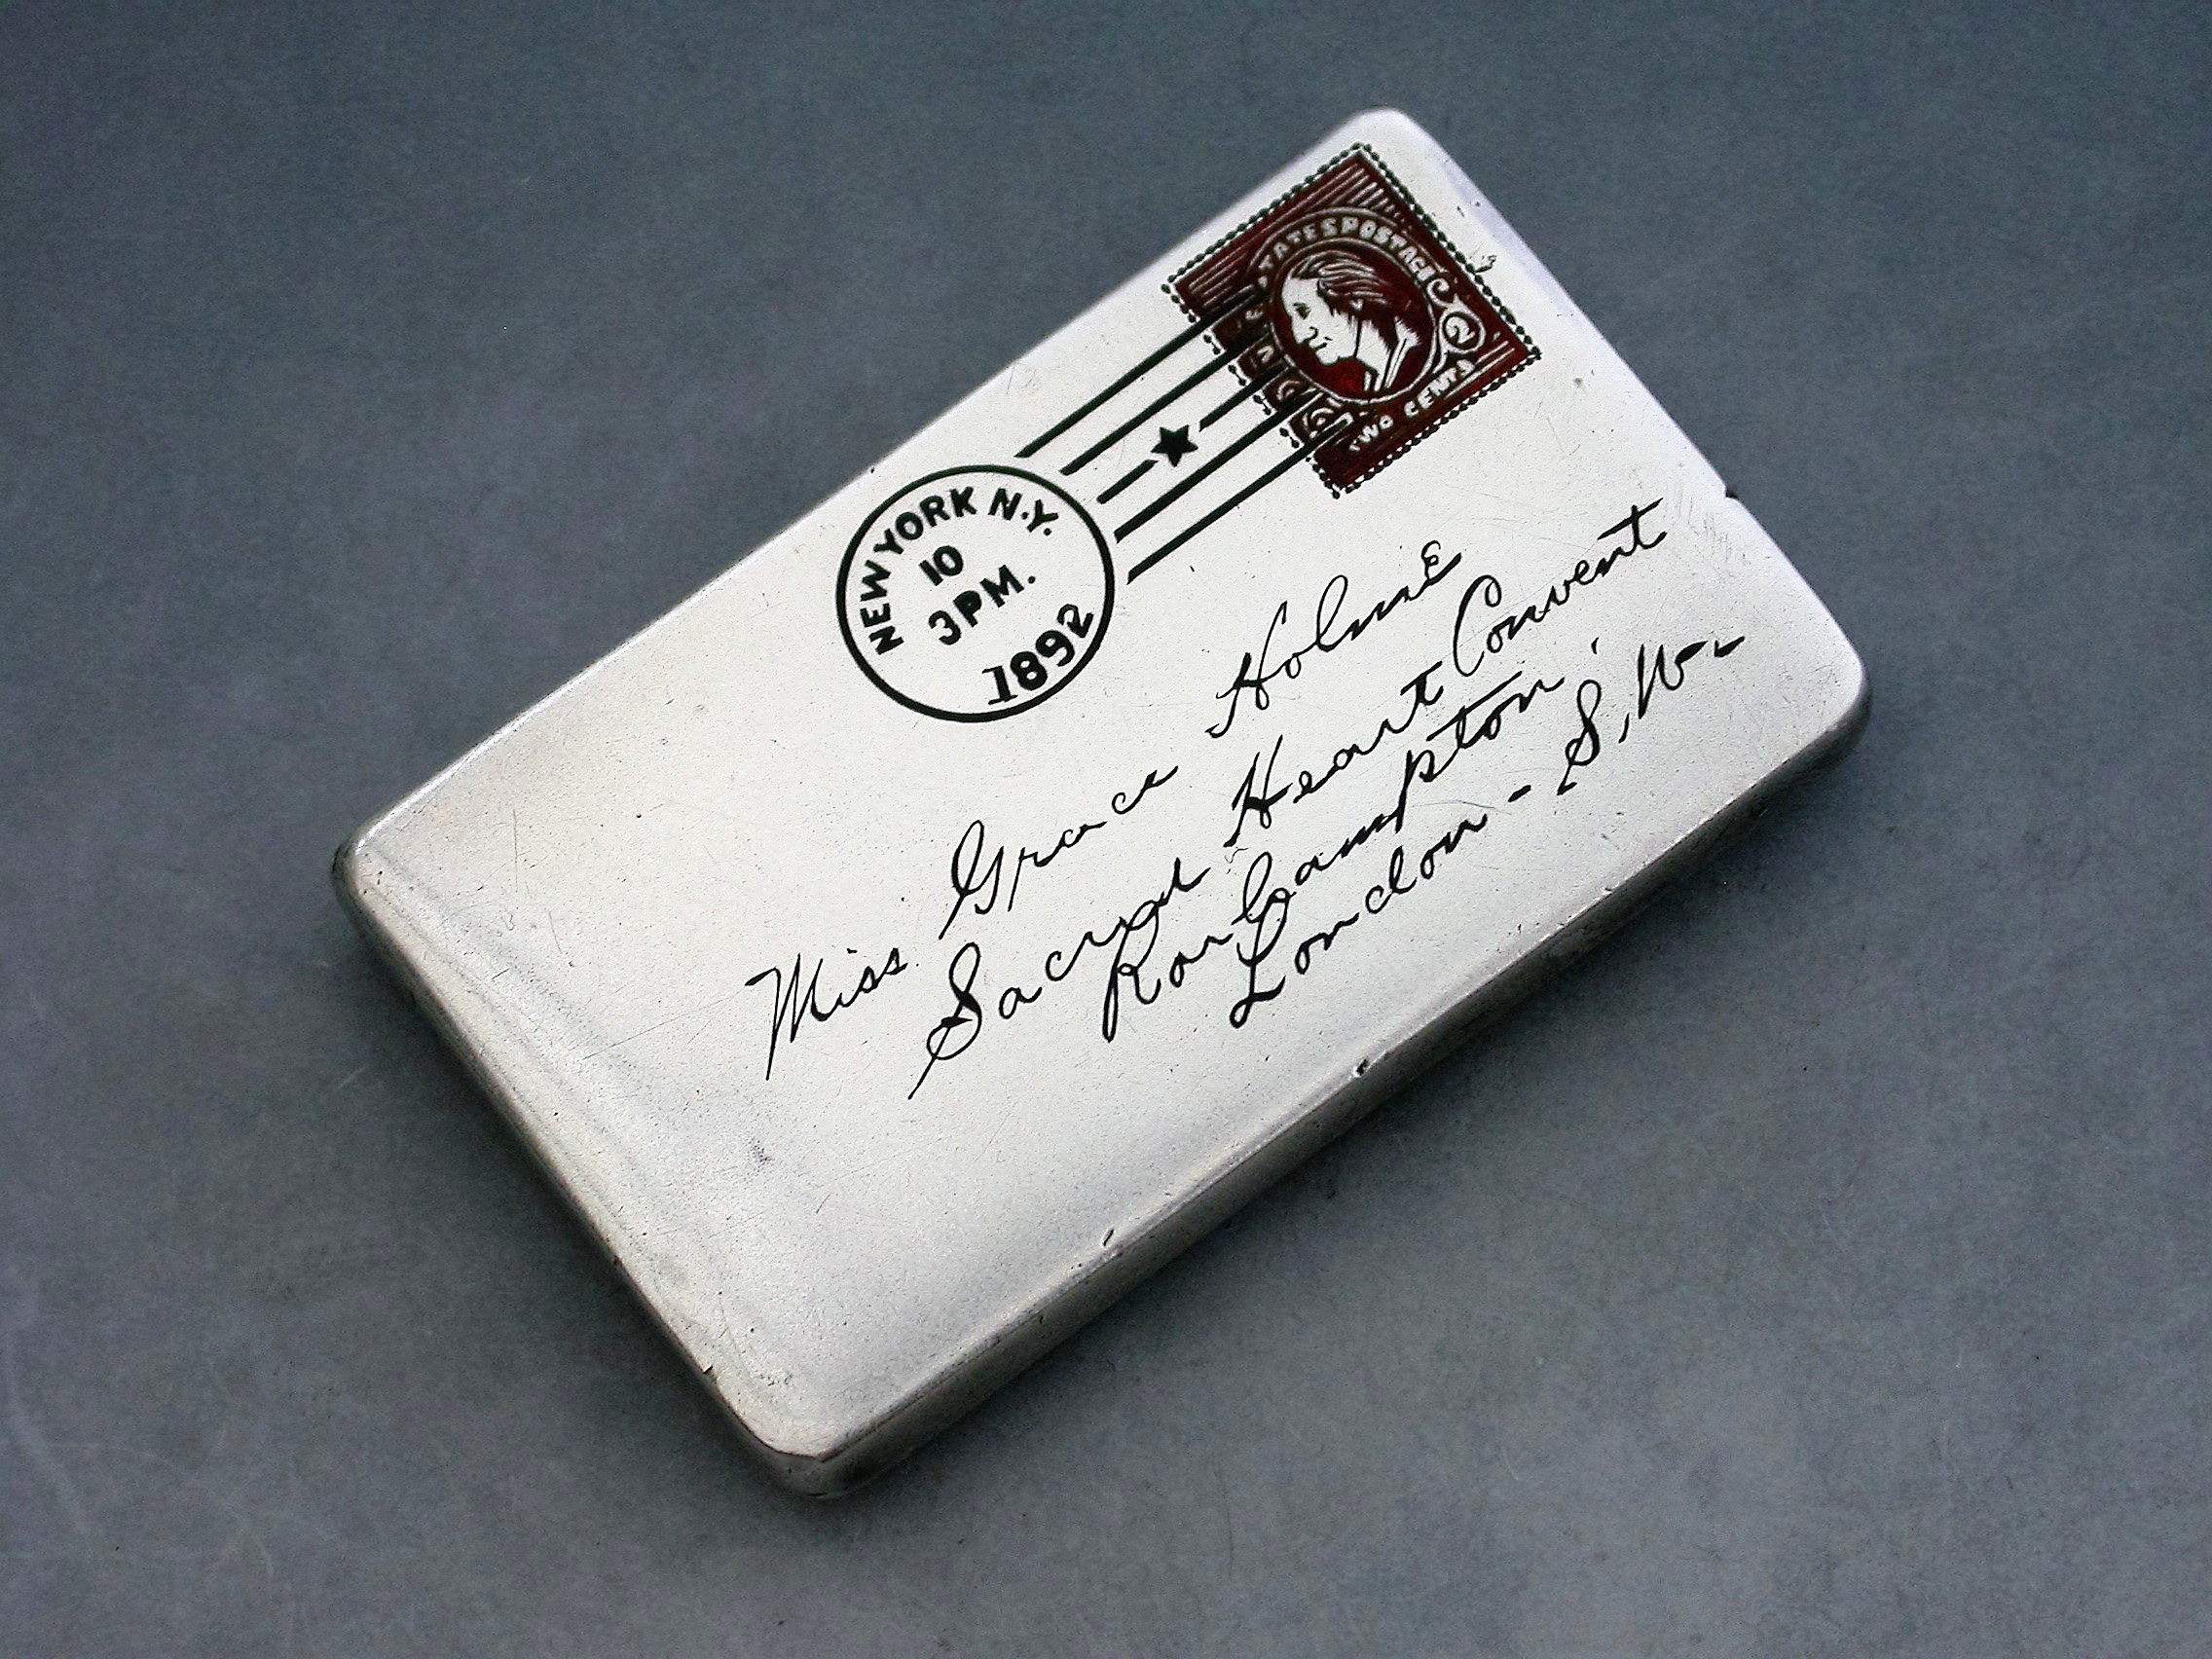 STATES POSTAGE
2
TWO CENTS
NEW YORK N.Y.
10
3 PM.
1892
Miss Grace Holme
Sacred Heart Convent
Roehampton,
London - S.W.